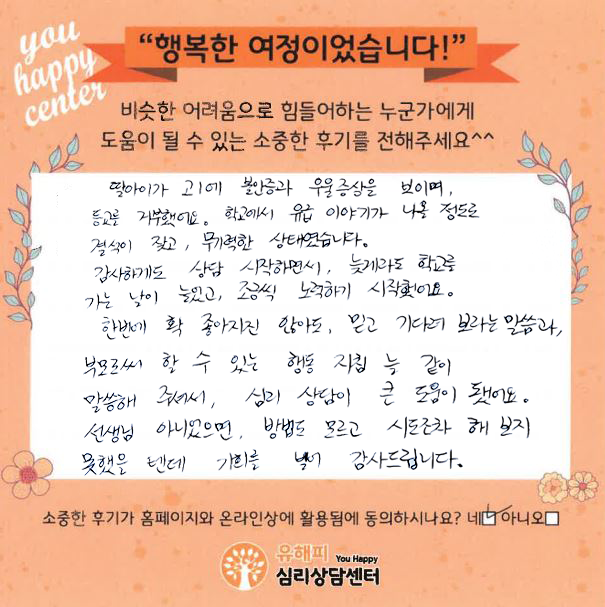 you
happy
center
“행복한 여정이었습니다!”
비슷한 어려움으로 힘들어하는 누군가에게
도움이 될 수 있는 소중한 후기를 전해주세요^^
딸아이가 고1에 불안증과 우울증상을 보이며,
등교를 거부했어요. 학교에서 유급 이야기가 나올 정도로
결석이 잦고, 무기력한 상태였습니다.
감사하게도 상담 시작하면서, 늦게라도 학교를
가는 날이 늘었고, 조금씩 노력하기 시작했어요.
한번에 확 좋아지진 않아도, 믿고 기다려 보라는 말씀과,
부모로써 할 수 있는 행동 지침 등 같이
말씀해 주셔서, 심리 상담이 큰 도움이 됐어요.
선생님 아니었으면, 방법도 모르고 시도조차 해 보지
못했을 텐데 기회를 빌어 감사드립니다.
소중한 후기가 홈페이지와 온라인상에 활용됨에 동의하시나요? 네☑ 아니오□
유해피 You Happy
심리상담센터